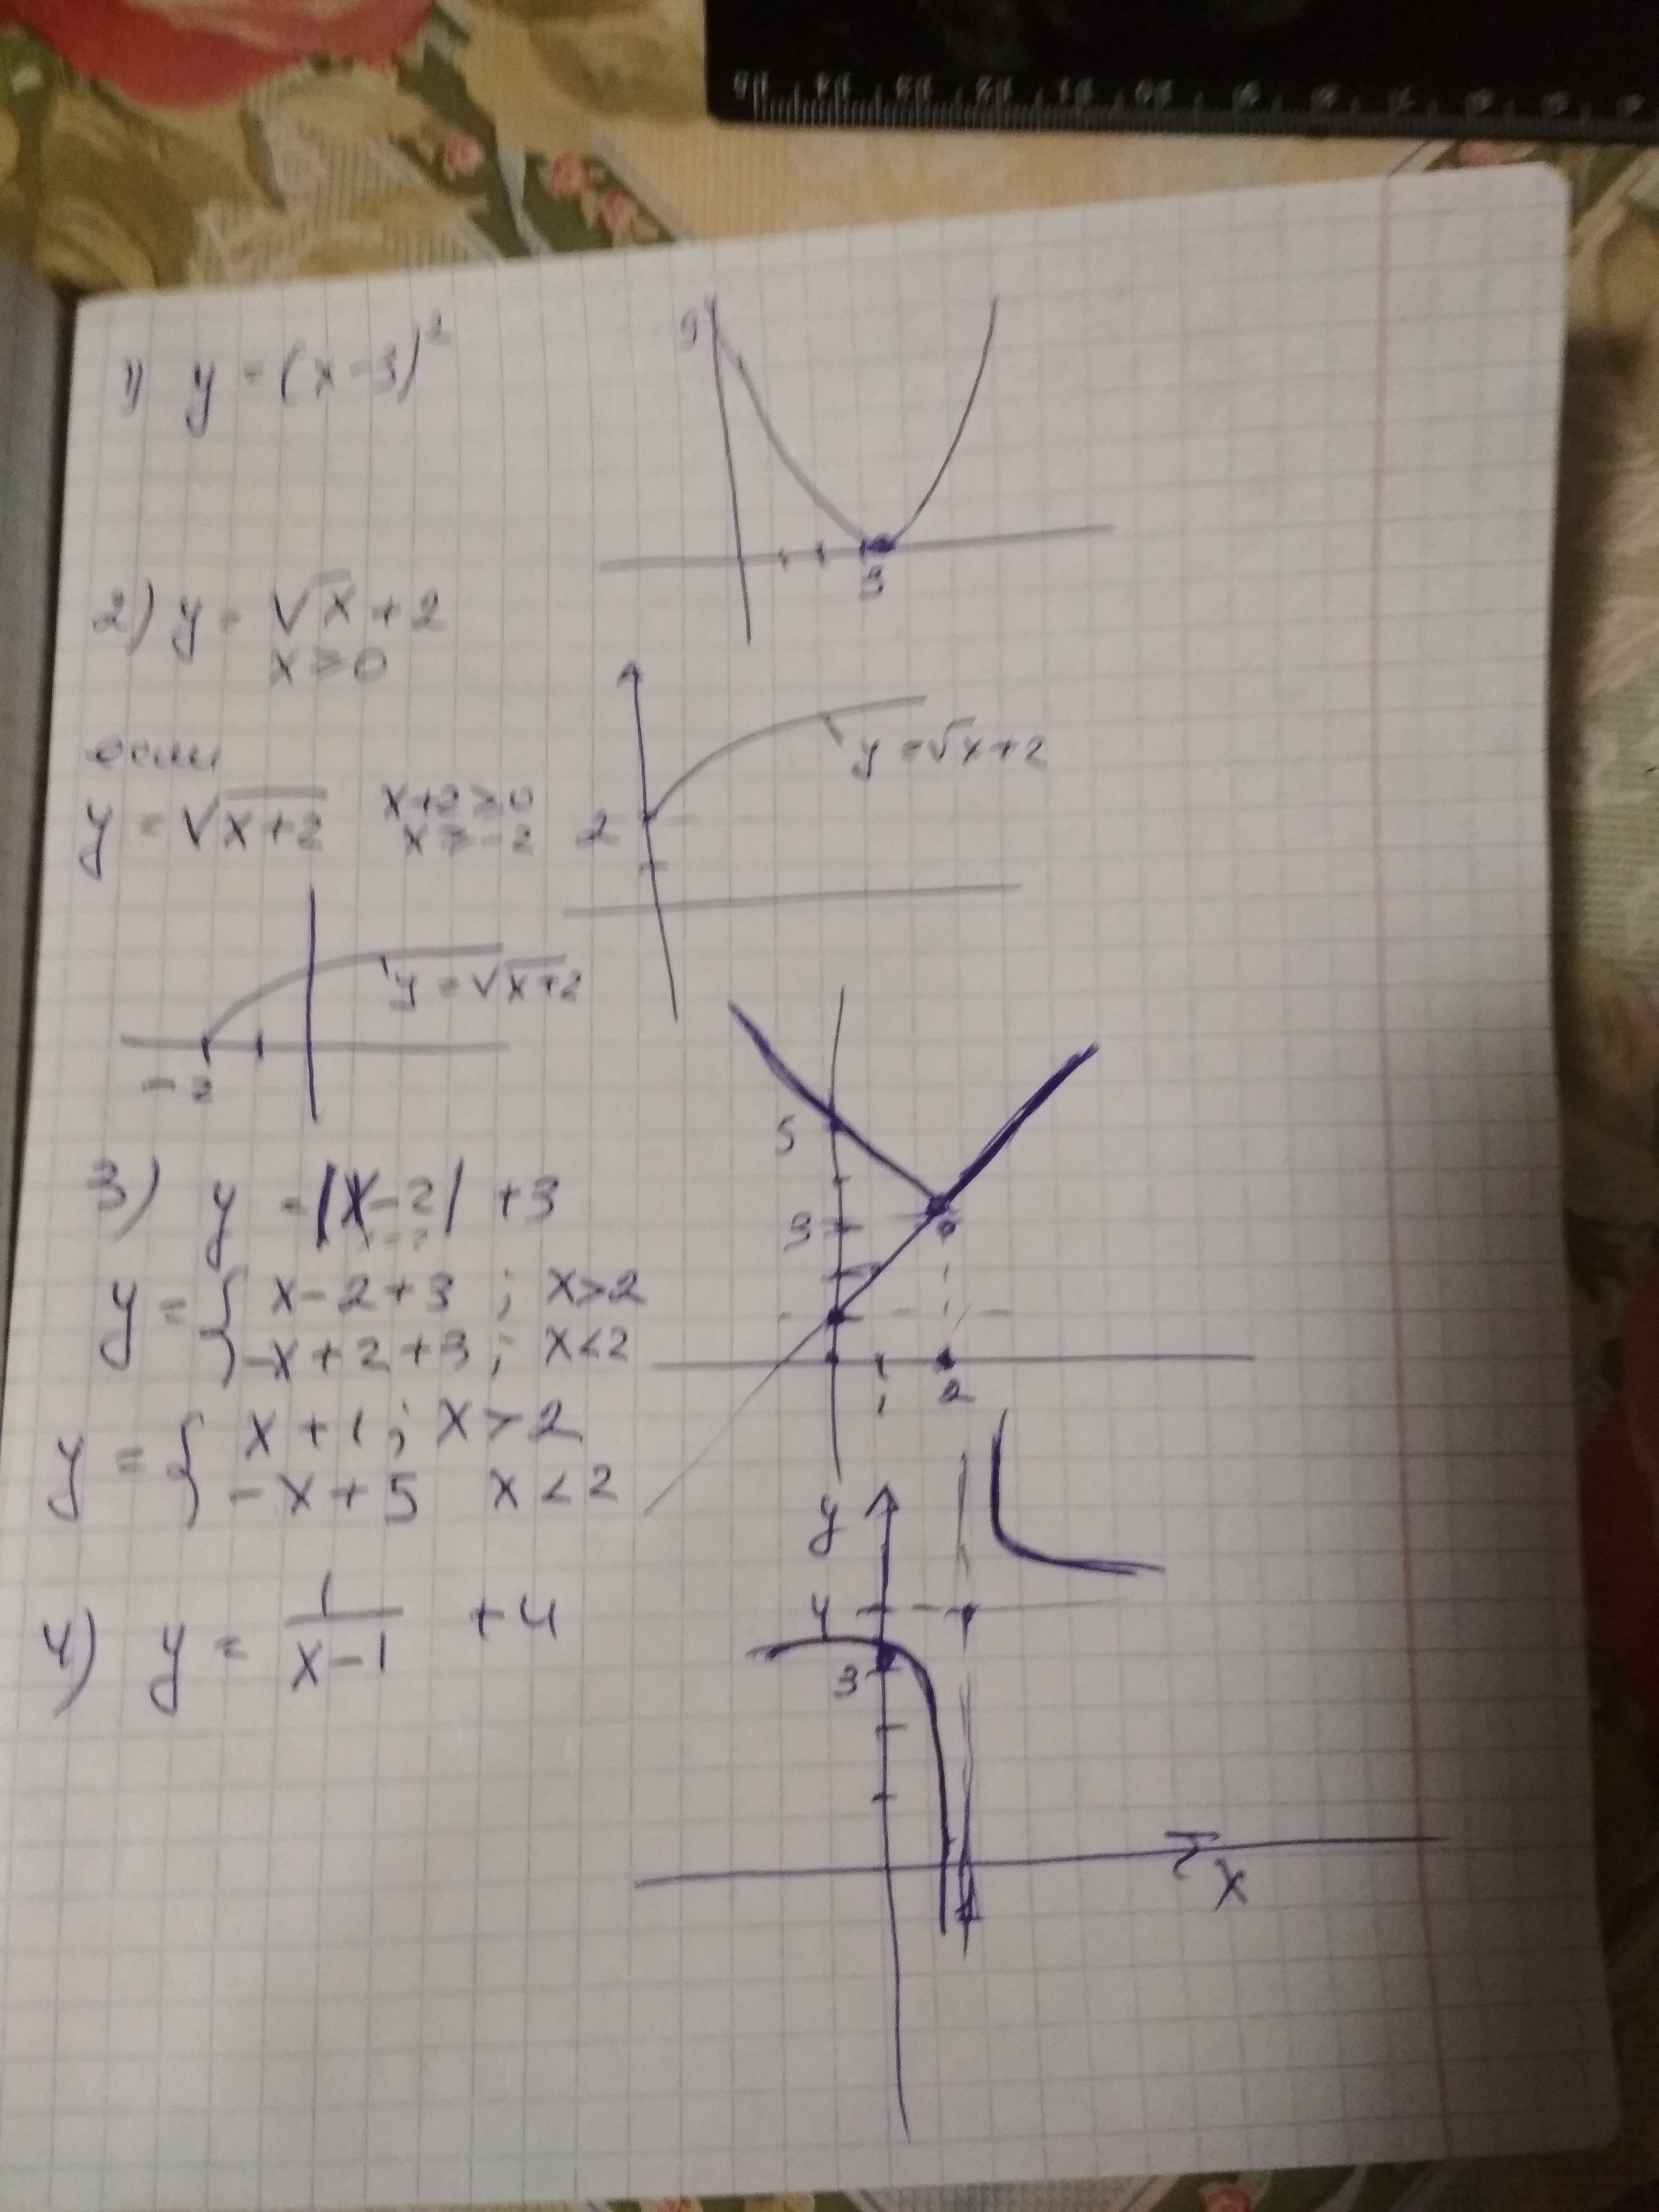 1) y = (x-3)²
9
3
2) y = √x + 2
x ≥ 0
y = √x + 2
2
если
y = √(x+2) x+2 ≥ 0
x ≥ -2
y = √(x+2)
-2
3) y = |x-2| + 3
5
3
1 2
y = { x - 2 + 3 ; x > 2
-x + 2 + 3 ; x < 2
y = { x + 1 ; x > 2
-x + 5 x < 2
4) y = 1/(x-1) + 4
y
4
3
x